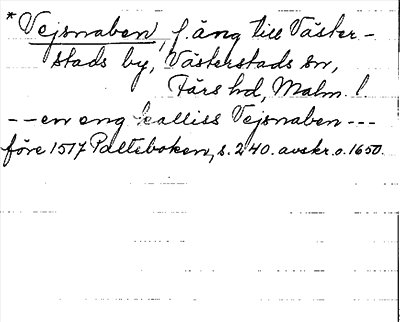 * Vejsnaben, f. äng till Väster-
stads by, Västerstads sn,
Färs hd, Malm. l.
--en eng kalliss Vejsnaben---
före 1517 Palteboken, s. 240. avskr. o. 1650.